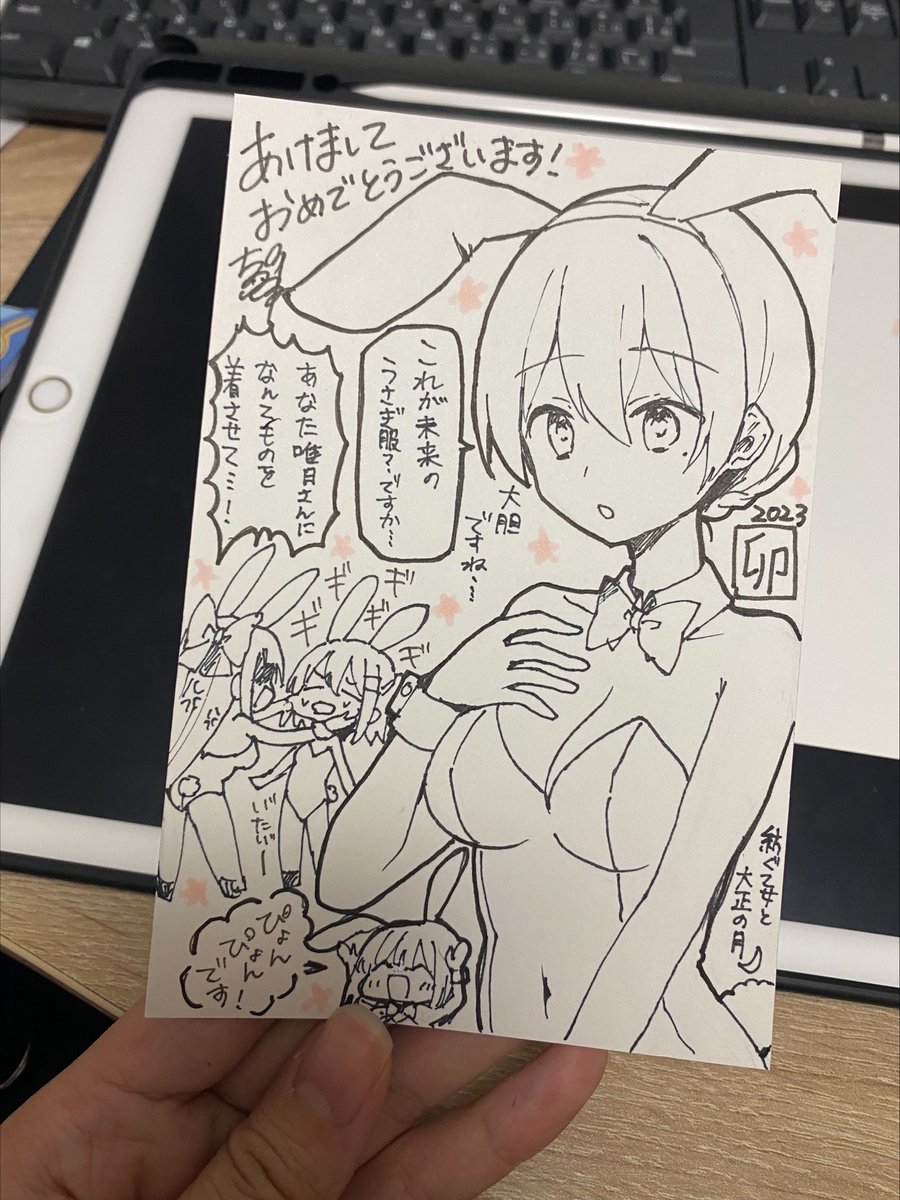 あけまして
おめでとうございます!
これが未来の
うさぎ服?ですか…
大胆
ですね…
あなた唯月さんに
なんてものを
着させて…!
2023
卯
ギ
ギ
ギ
ギ
ギ
いたい"ー
ぴょん
ぴょん
です!
紡ぐ乙女と
大正の月